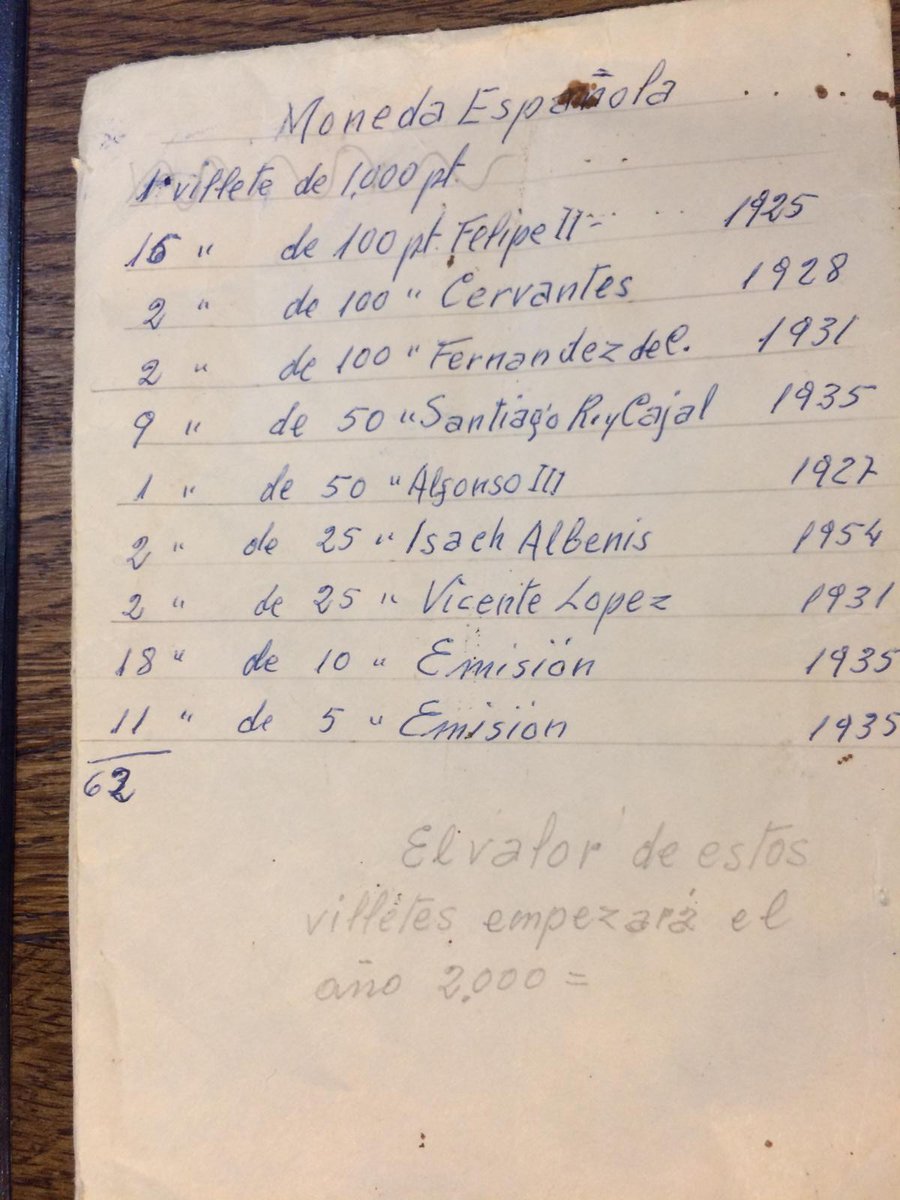 Moneda Española
1 villete de 1.000 pt.
15 " de 100 pt. Felipe II - 1925
2 " de 100 " Cervantes 1928
2 " de 100 " Fernandez de C. 1931
9 " de 50 " Santiago R. y Cajal 1935
1 " de 50 " Alfonso III 1927
2 " de 25 " Isach Albenis 1954
2 " de 25 " Vicente Lopez 1931
18 " de 10 " Emisión 1935
11 " de 5 " Emisión 1935
62
El valor de estos
villetes empezará el
año 2.000 =